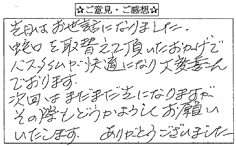 ☆ご意見・ご感想☆
先日はお世話になりました。
蛇口を取替えて頂いたおかげで
バスタイムが快適になり大変喜ん
でおります。
次回はまだまだ先になりますが
その際もどうかよろしくお願い
いたします。 ありがとうございました